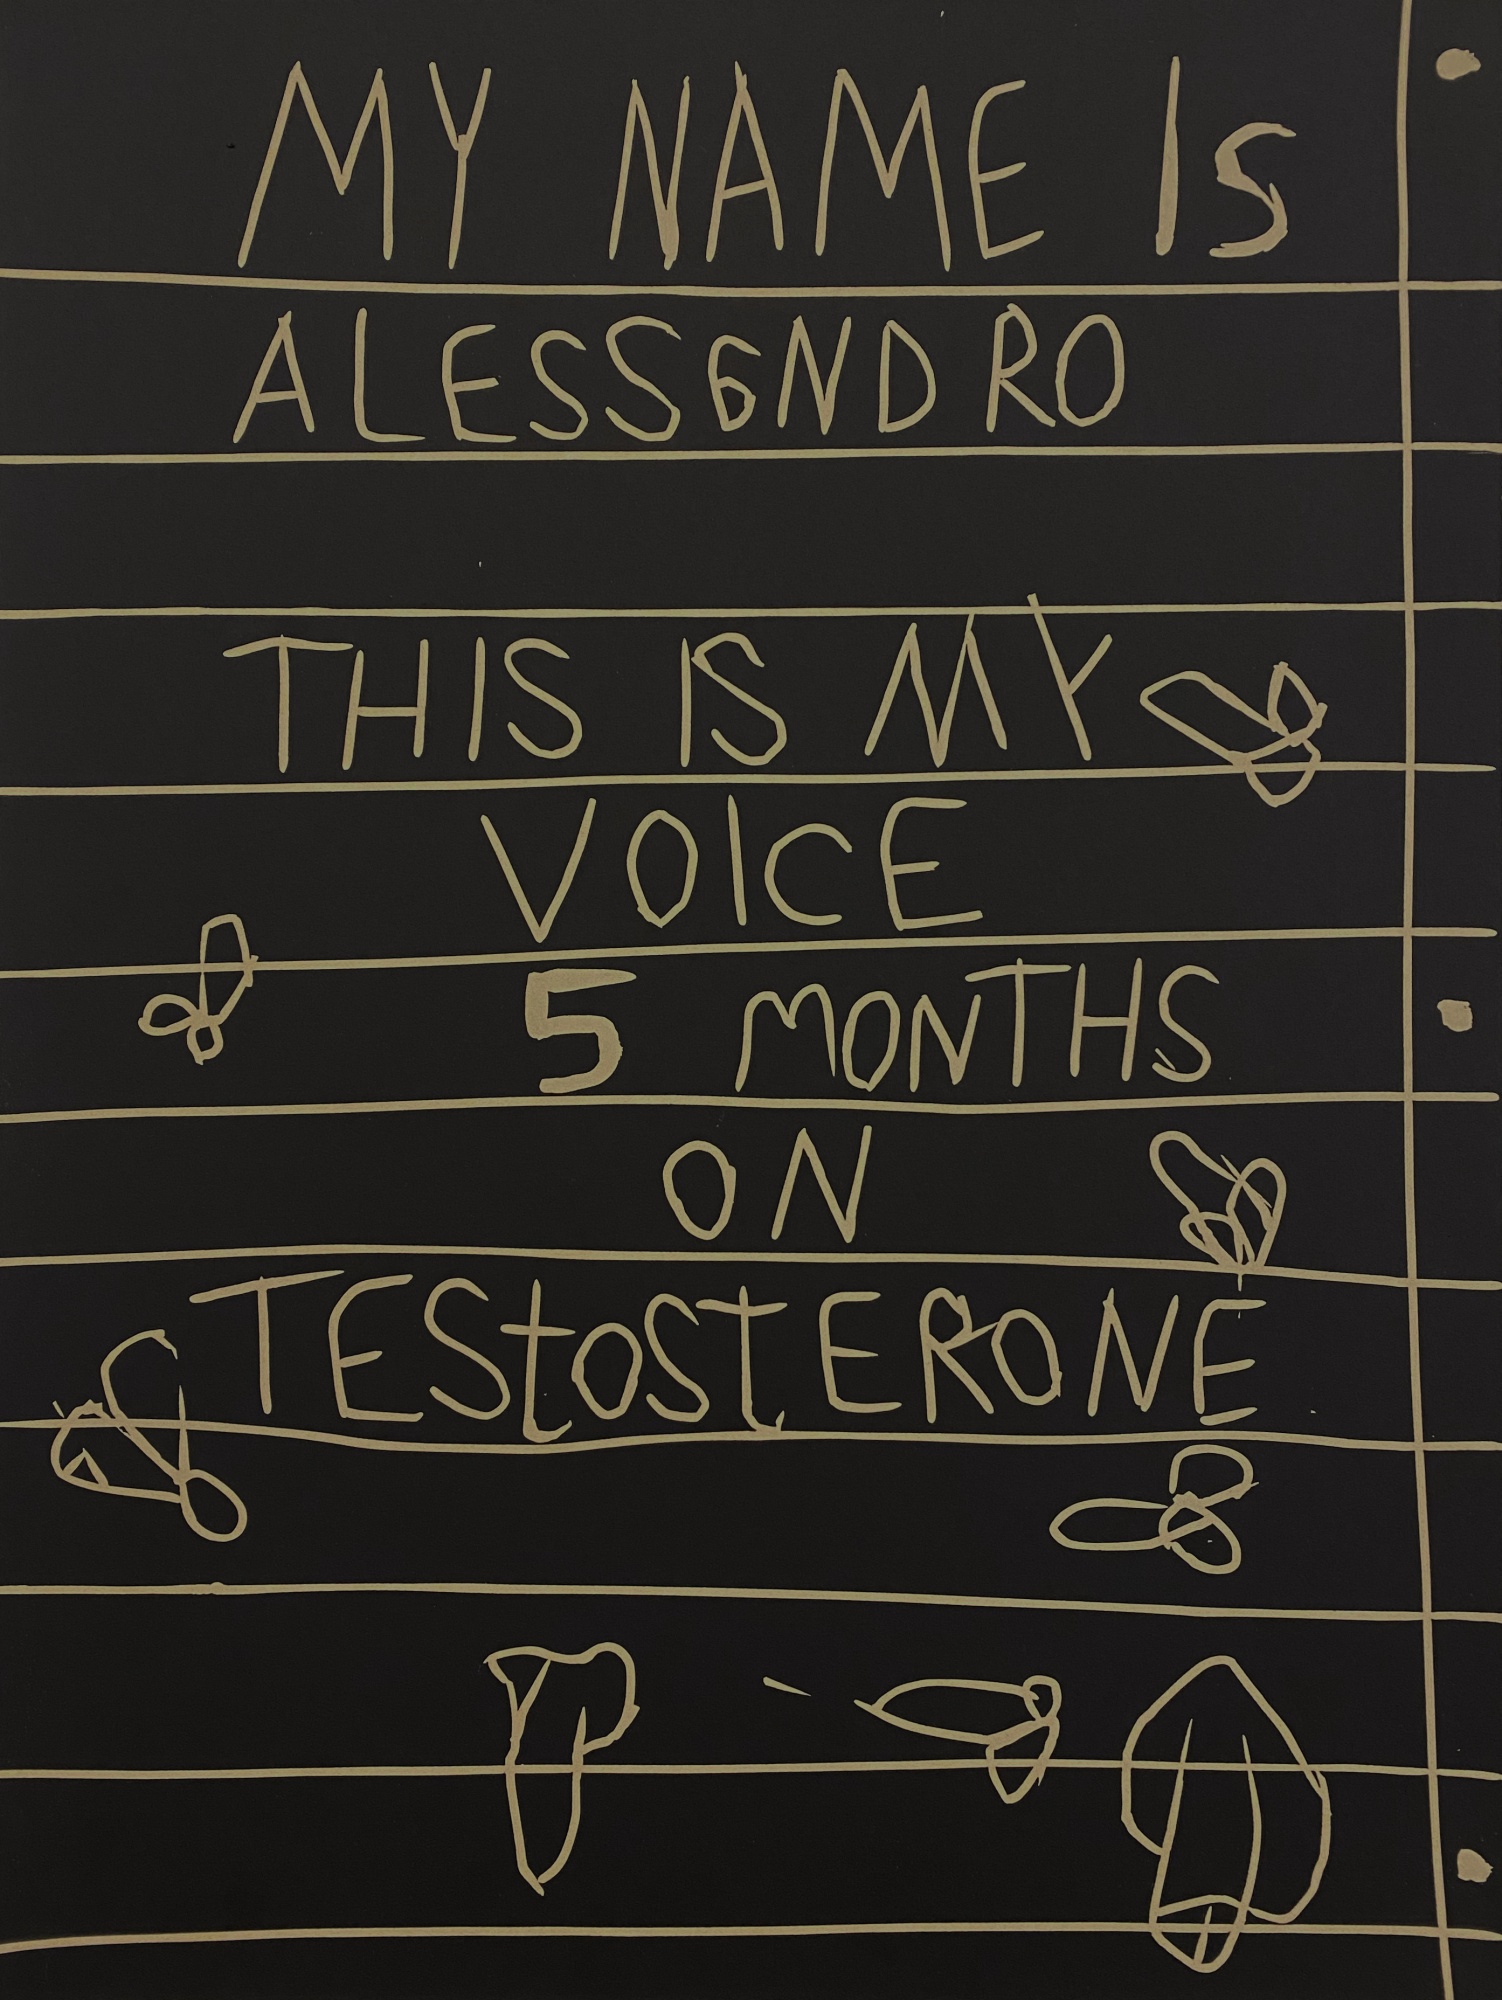 MY NAME IS
ALESS6NDRO
THIS IS MY
VOICE
5 MONTHS
ON
TEStOStERONE